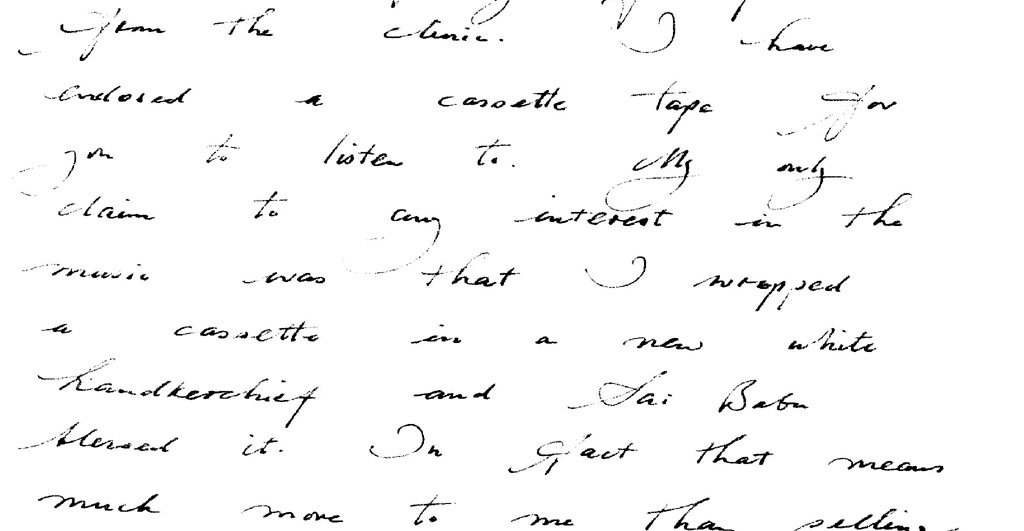 from the clinic. I have
enclosed a cassette tape for
you to listen to. My only
claim to any interest in the
music was that I wrapped
a cassette in a new white
handkerchief and Sai Baba
blessed it. In fact that means
much more to me than selling